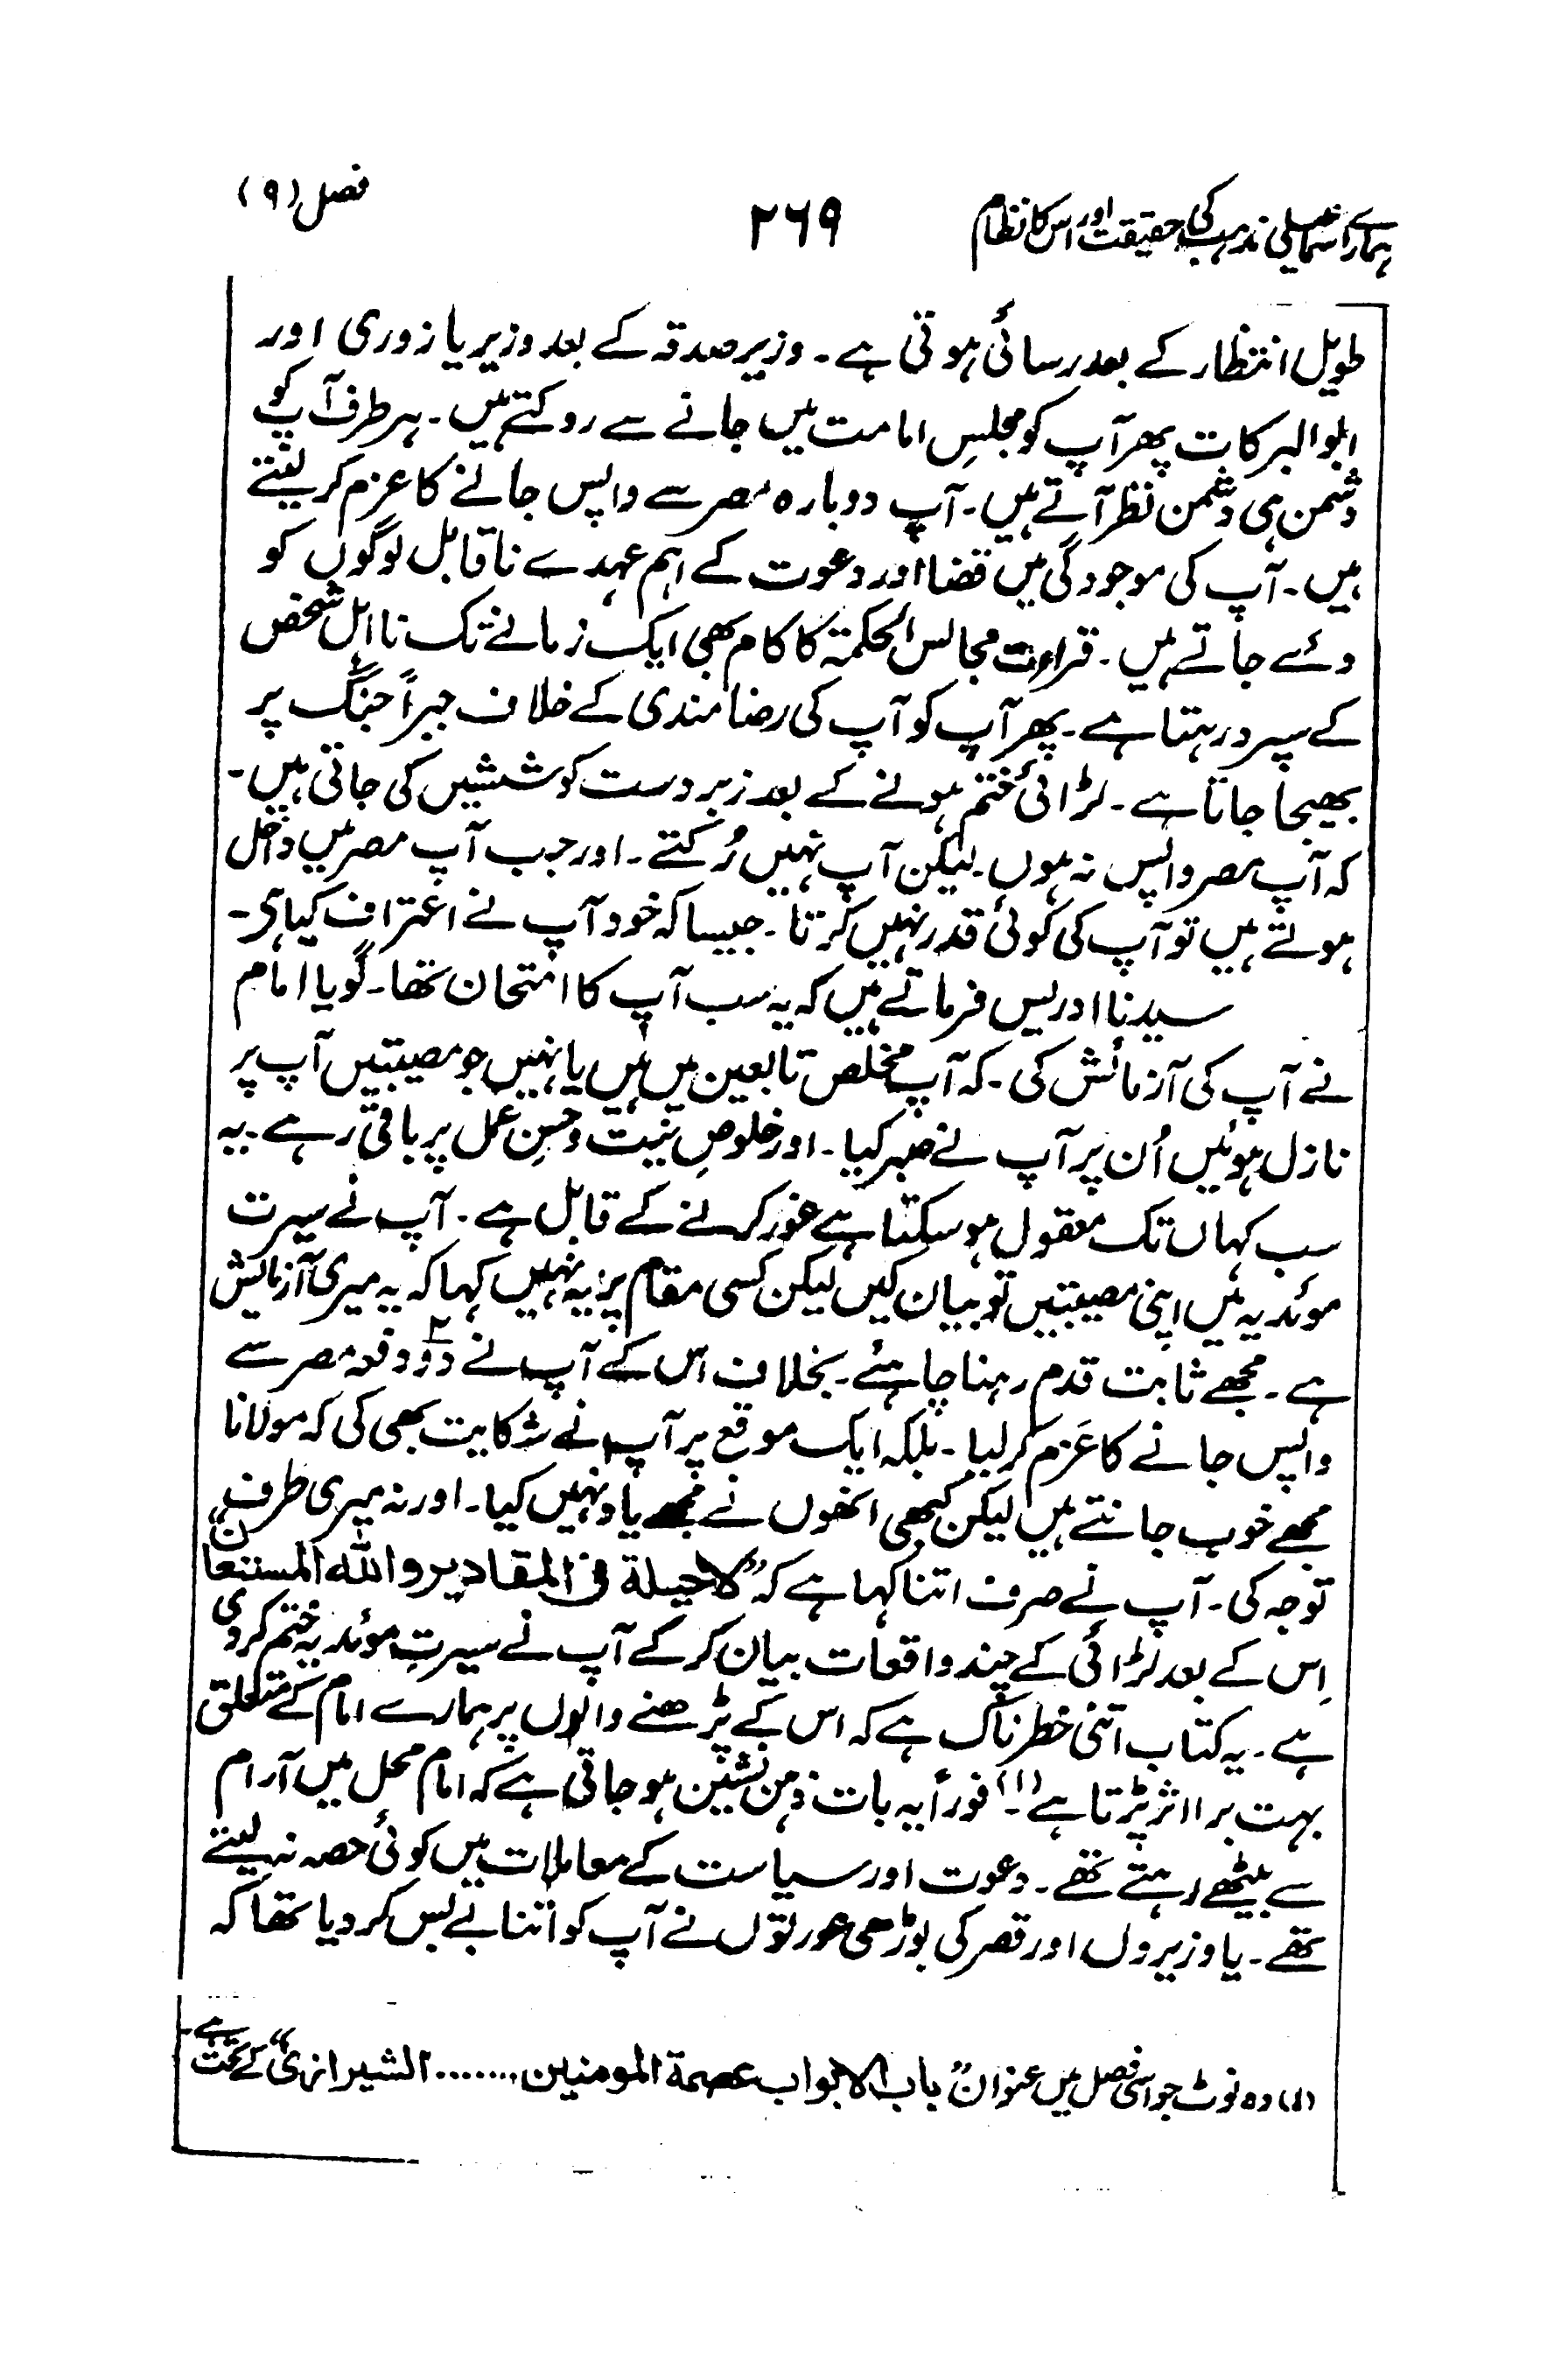 ہمارے اسماعیلی مذہب کی حقیقت اور اس کا نظام
۲۶۹
فصل (۹)
طویل انتظار کے بعد رسائی ہوتی ہے۔ وزیر صدقہ کے بعد وزیر یازوری اور
ابوالبرکات پھر آپ کو مجلسِ امامت میں جانے سے روکتے ہیں۔ ہر طرف آپ کو
دشمن ہی دشمن نظر آتے ہیں۔ آپ دوبارہ مصر سے واپس جانے کا عزم کر لیتے
ہیں۔ آپ کی موجودگی میں قضا اور دعوت کے اہم عہدے ناقابل لوگوں کو
دئے جاتے ہیں۔ قراءت مجالس الحکمۃ کا کام بھی ایک زمانے تک نااہل شخص
کے سپرد رہتا ہے۔ پھر آپ کو آپ کی رضامندی کے خلاف جبراً جنگ پر
بھیجا جاتا ہے۔ لڑائی ختم ہونے کے بعد زبردست کوششیں کی جاتی ہیں۔
کہ آپ مصر واپس نہ ہوں۔ لیکن آپ نہیں رُکتے۔ اور جب آپ مصر میں داخل
ہوتے ہیں تو آپ کی کوئی قدر نہیں کرتا۔ جیسا کہ خود آپ نے اعتراف کیا ہی۔
سیدنا ادریس فرماتے ہیں کہ یہ سب آپ کا امتحان تھا۔ گویا امام
نے آپ کی آزمائش کی۔ کہ آپ مخلص تابعین میں ہیں یا نہیں جو مصیبتیں آپ پر
نازل ہوئیں اُن پر آپ نے صبر کیا۔ اور خلوصِ نیت و حسنِ عمل پر باقی رہے۔ یہ
سب کہاں تک معقول ہو سکتا ہے غور کرنے کے قابل ہے۔ آپ نے سیرت
موئدیہ میں اپنی مصیبتیں تو بیان کیں لیکن کسی مقام پر یہ نہیں کہا کہ یہ میری آزمایش
ہے۔ مجھے ثابت قدم رہنا چاہئے۔ بخلاف اس کے آپ نے دو۲ دفعہ مصر سے
واپس جانے کا عَزم کر لیا۔ بلکہ ایک موقع پر آپ نے شکایت بھی کی کہ مولانا
مجھے خوب جانتے ہیں لیکن کبھی انھوں نے مجھے یاد نہیں کیا۔ اور نہ میری طرف
توجہ کی۔ آپ نے صرف اتنا کہا ہے کہ ”لاحیلۃ فی المقادیر واللہ المستعان“
اِس کے بعد لڑائی کے چند واقعات بیان کر کے آپ نے سیرتِ موئدیہ ختم کر دی
ہے۔ یہ کتاب اتنی خطرناک ہے کہ اس کے پڑھنے والوں پر ہمارے امام کے متعلق
بہت برا اثر پڑتا ہے (۱)۔ فوراً یہ بات ذہن نشین ہو جاتی ہے کہ امام محل میں آرام
سے بیٹھے رہتے تھے۔ دعوت اور سیاست کے معاملات میں کوئی حصہ نہ لیتے
تھے۔ یا وزیروں اور قصر کی بوڑھی عورتوں نے آپ کو اتنا بے بس کر دیا تھا کہ
(۱) وہ نوٹ جو اسی فصل میں عنوان ”باب الابواب عصمۃ المومنین ....... الشیرازی“ کے تحت ہے۔